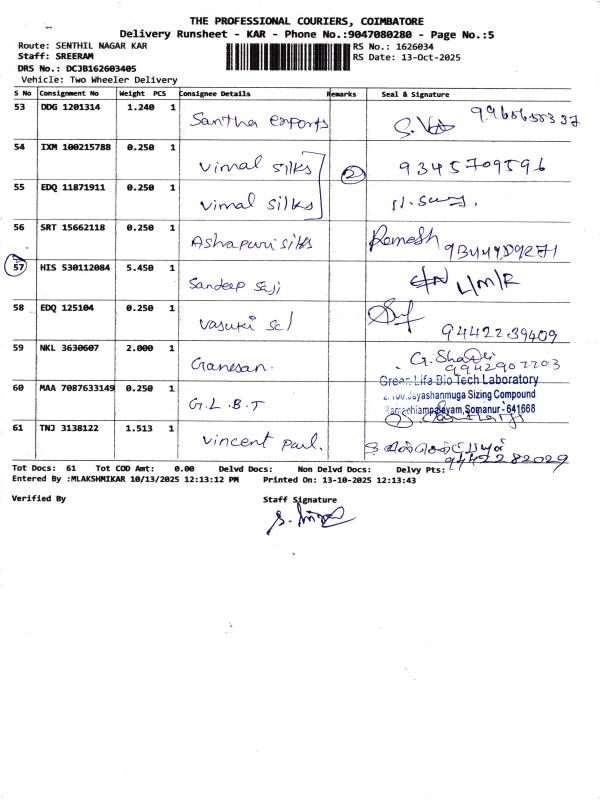 THE PROFESSIONAL COURIERS, COIMBATORE
Delivery Runsheet - KAR - Phone No.:9047080280 - Page No.:5
Route: SENTHIL NAGAR KAR RS No.: 1626034
Staff: SREERAM RS Date: 13-Oct-2025
DRS No.: DCJB162603405
Vehicle: Two Wheeler Delivery
S No Consignment No Weight PCS Consignee Details Remarks Seal & Signature
53 DDG 1201314 1.240 1 Santha exports
54 IXM 100215788 0.250 1 Vimal silks 2 9345709596
55 EDQ 11871911 0.250 1 Vimal silks
56 SRT 15662118 0.250 1 Ashapuri silks Ramesh
57 HIS 530112084 5.450 1 Sandeep L/M/R
58 EDQ 125104 0.250 1 Vasuki 9442239409
59 NKL 3630607 2.000 1 Ganesan.
60 MAA 7087633149 0.250 1 G.L.B.T Green Life Bio Tech Laboratory
Jayashanmuga Sizing Compound
Somanur - 641668
61 TNJ 3138122 1.513 1 Vincent Paul. 9442282029
Tot Docs: 61 Tot COD Amt: 0.00 Delvd Docs: Non Delvd Docs: Delvy Pts:
Entered By :MLAKSHMIKAR 10/13/2025 12:13:12 PM Printed On: 13-10-2025 12:13:43
Verified By Staff Signature